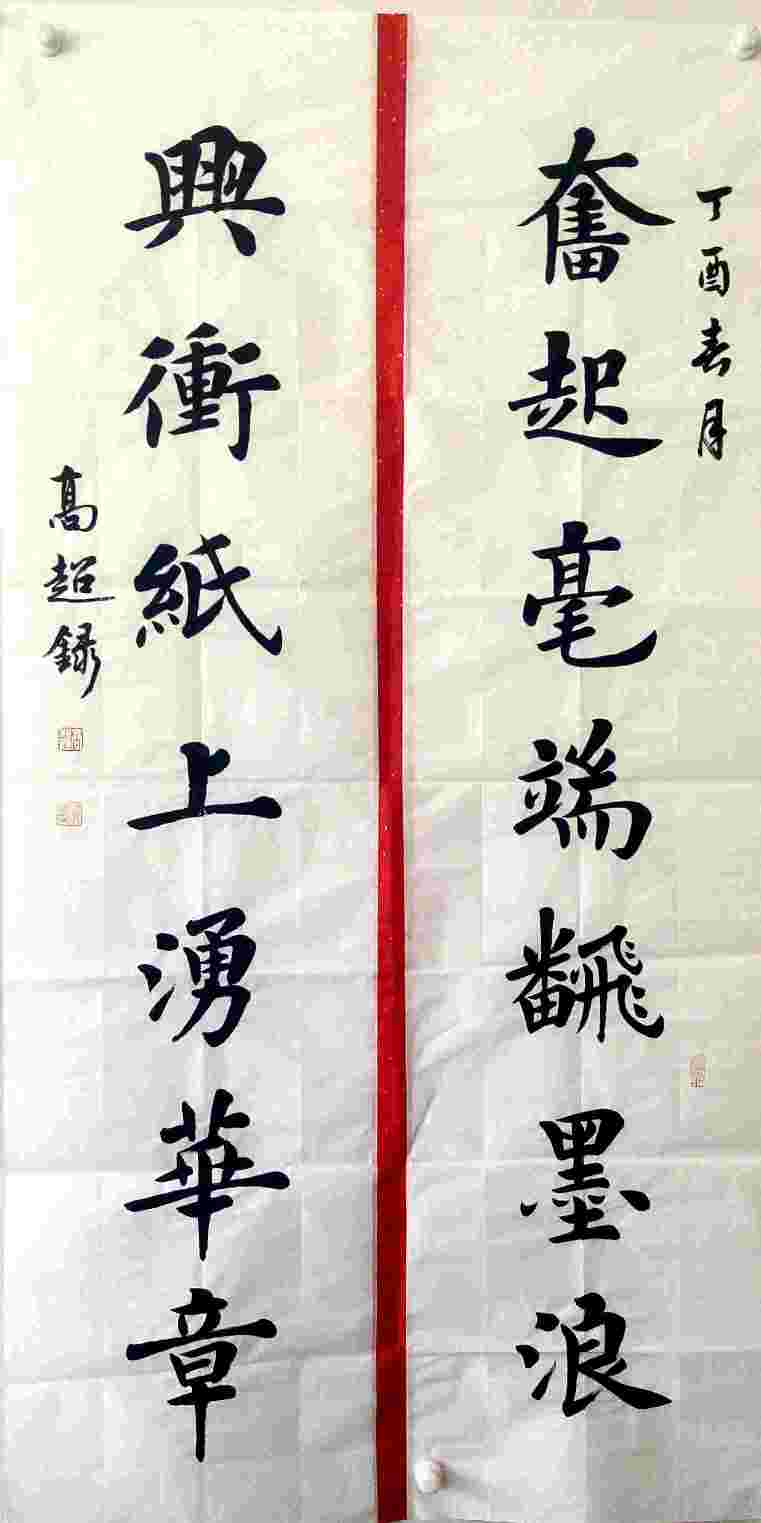 丁酉春月
奮起毫端飜墨浪
興衝紙上湧華章
高超錄